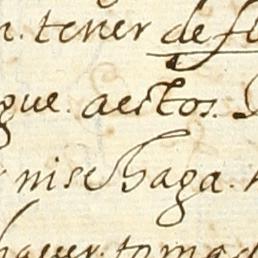 tener de
que. aestos.
nise haga.
haver. tomad